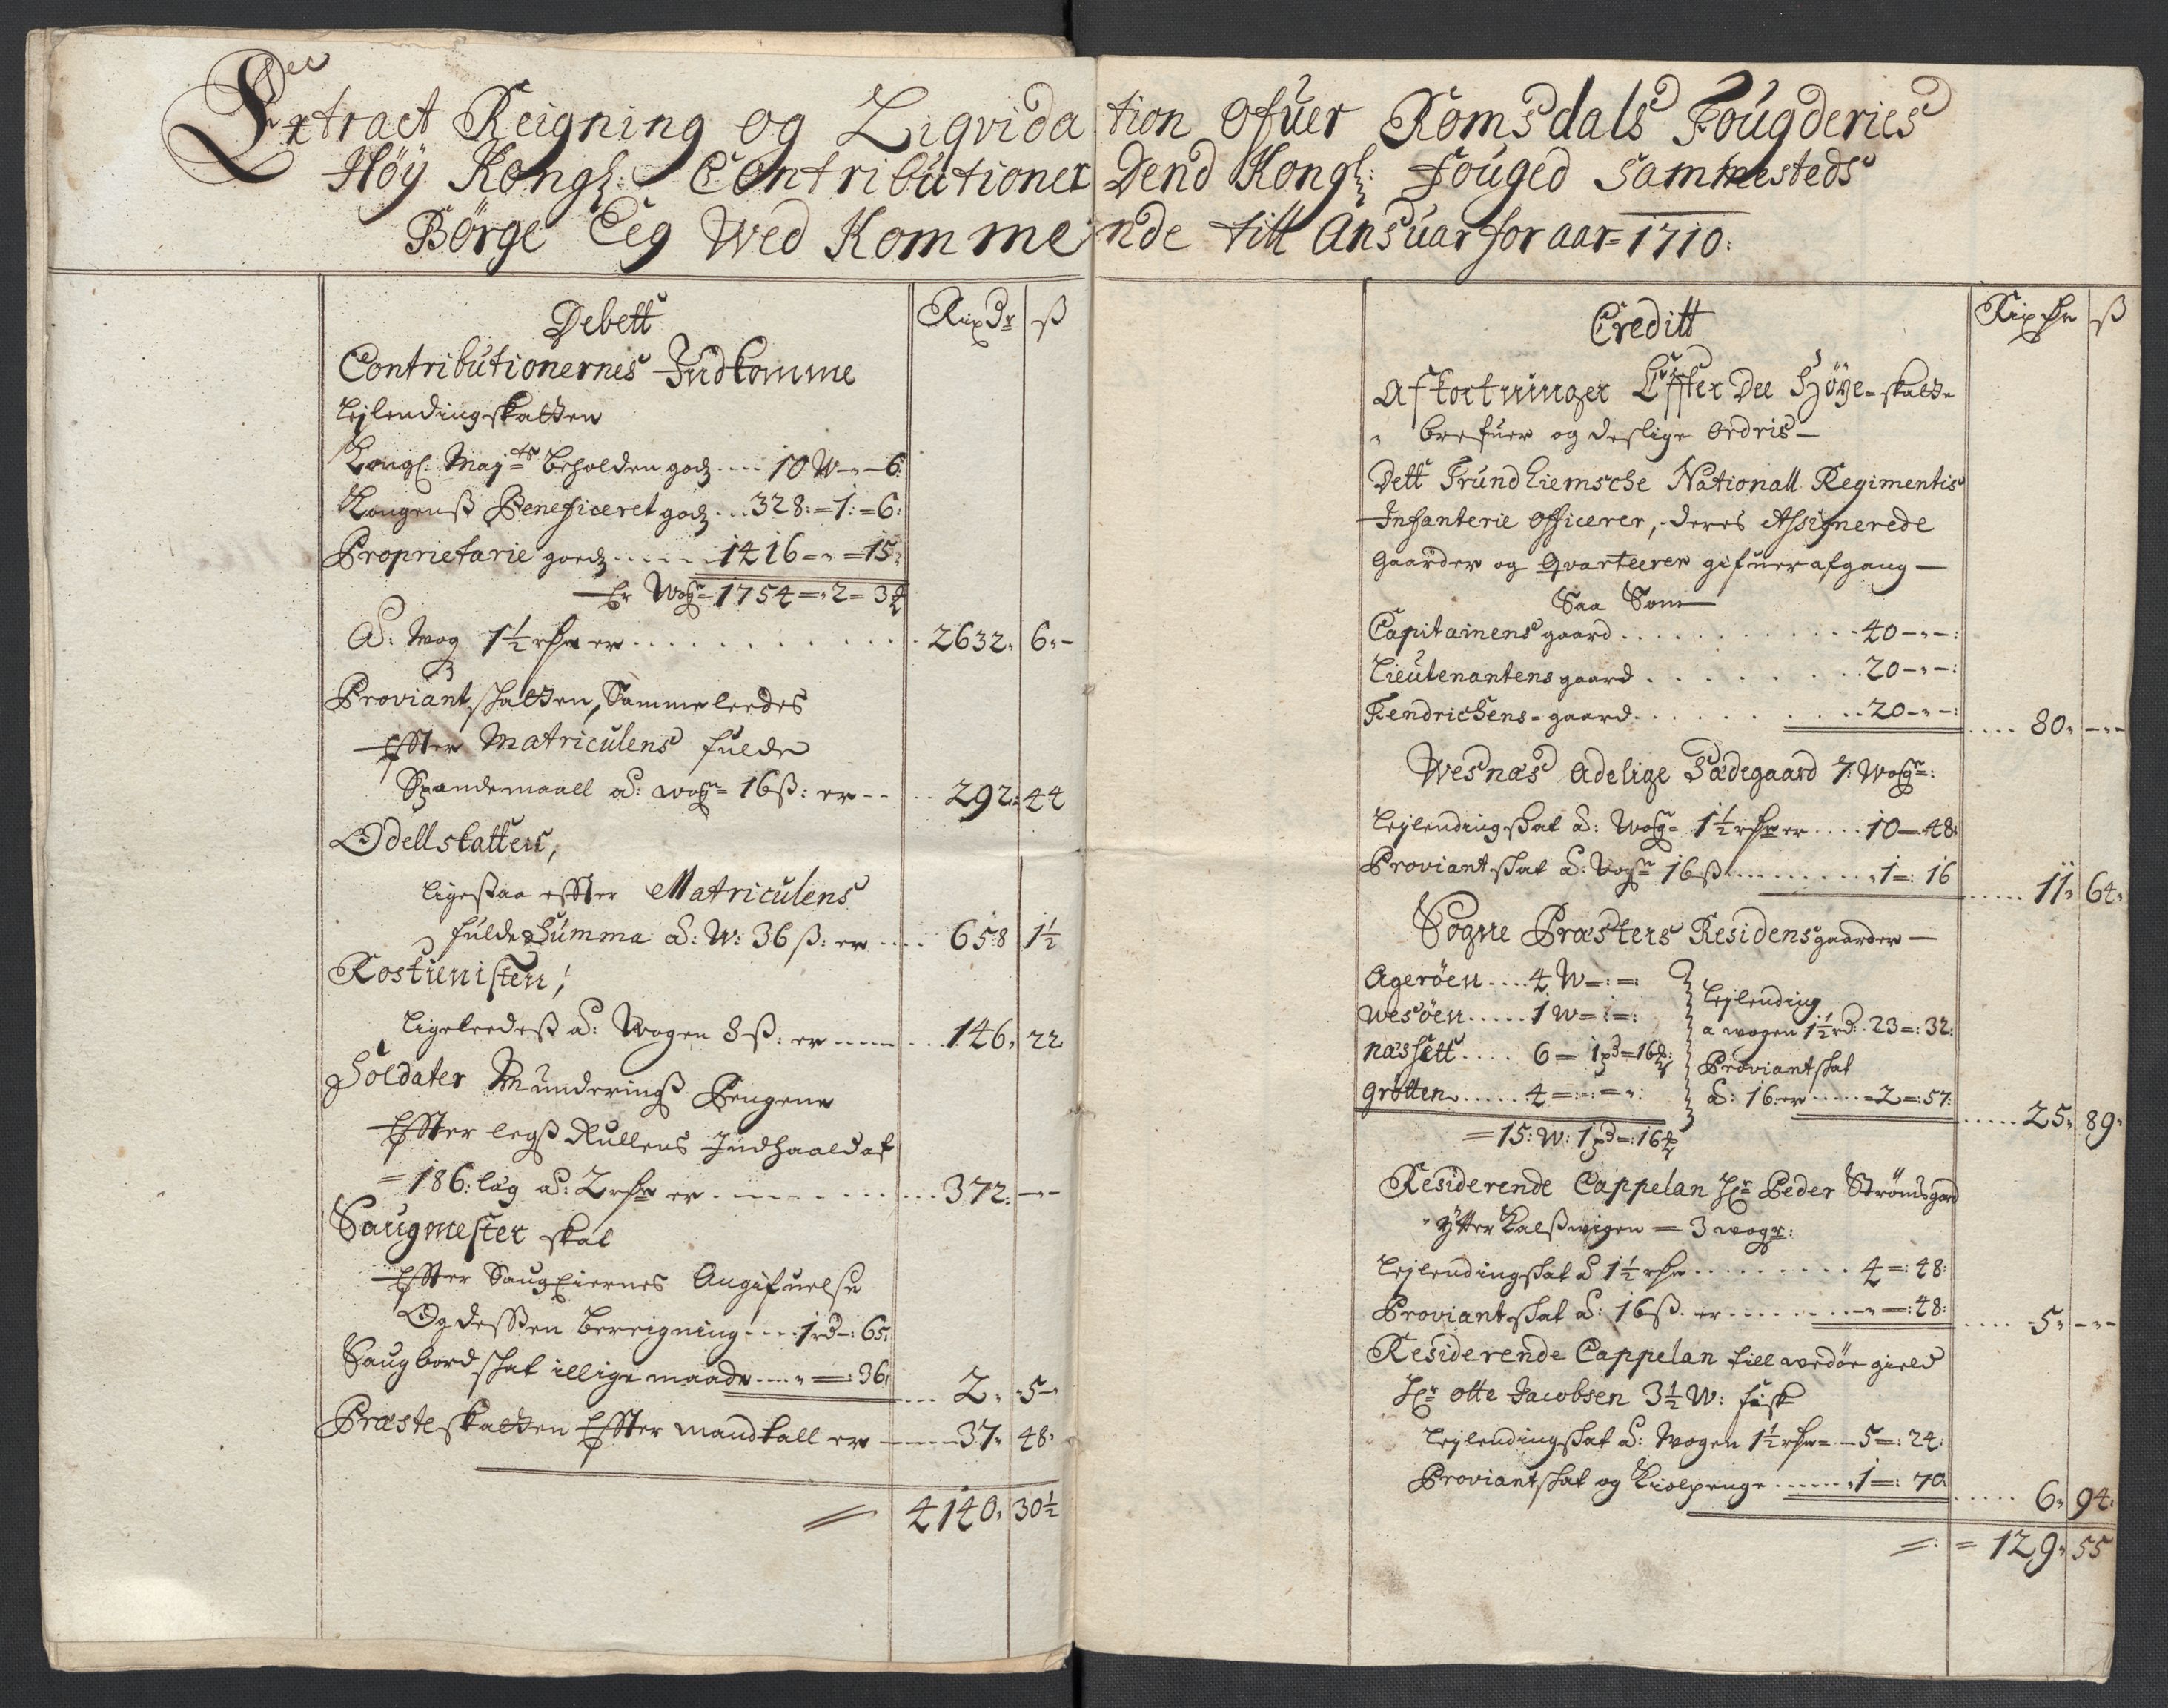 Extract Reigning og Liqvidation ofuer Romsdals Fougderies
Höy Kongl: Contributioner Dend Kongl: fouged Sammesteds
Börge Eeg Wed Kommende till Ansuar for aar= 1710:
Debett
Rixdr
ß
Contributionernes Indkomme
Lejlendingskatten
Kongl: Mayts beholden godz .... 10 W - „ - 6:
Kongenß Beneficeret godz ... 328: = 1: = 6:
Proprietarie goedz ...... 1416 = „ = 15:
Er Wogr= 1754 = „ 2 = 3 ℔
Ad: Wog 1½ rdr er ........... 2632„ 6„ -
Proviant skatten, Sammeleedes
Effter Matriculens fulde
Spandemaall ad: wogr= 16 ß: er -- .. 292: 44
Odellskatten,
Ligesaa effter Matriculens
fulde Summa ad: W: 36 ß: er .... 658 1½
Rostienisten,
Ligeleedeß ad: Wogen 8 ß: er ------ ... 146„ 22
Soldater Munderingß Pengene
Effter legß Rullens Indhaald af
= 186: läg ad: 2 rdr er .-.--...... 372: -„-
Saugmester skat
Effter Saug Eiernes Angifuelse
Og dessen bereigning .... 1 rd -: 65:
Saugbord skat i lige maade .... „ =: 36:
.... 2„ „5-„
Præsteskatten Effter mandtall er ------ 37„ 48„
= 4140„ 30½
Creditt
Rixdr
ß
Afkortninger Effter Dee Höye= skatte
„ brefuer og deslige Ordris -
Dett Trundhiemsche Nationall Regimentis
Infanterie officerer, deres Assignerede
Gaarder og Qvarteerer gifuer afgang -
Saa Som
Capitainens gaard ........... 40 - „ -:
Lieutenantens gaard ........ 20 - „ -:
Fendrichens= gaard ........ 20 - „ -:
.... 80„ -„-
Wesnæs Adelige Sædegaard 7: Wogr=:
Lejlendingskat ad: Wogr= 1½ rdr er .... 10 - 48:
Proviantskat ad: Wogr 16 ß .......... „1 =: 16
..... 11„ 64„
Sogne Præsters Residens gaarder -
Ageröen .... 4 W =: =:
Wesöen ..... 1 W =: =:
Næssett .... 6 = 1 pd = 16 ℔:
Grötten ...... 4 =:-: = „:
= 15: W: 1 pd =: 16 ℔
Lejlending
a wogen 1½ rd: . 23 =: 32:
Proviantskat
ad: 16: er ..... = 2 =: 57:
..... 25„ 89„
Residerende Cappelan Hr Peder Strömsgord
„ ytter Kalßwigen = 3 wogr:
Lejlendingskat ad 1½ rdr ......... 4 =: 48:
Proviantskat ad: 16 ß. er ........ - „ =: 48:
.... 5„ -„-
Residerende Cappelan till wedöe gield
Hr= Otte Jacobsen 3½ W: fisk
Lejlendingskat ad: Wogen 1½ rdr= - 5 =: 24:
Proviantskat og ........ „1 =: 70
..... 6„ 94„
=: = 129„ 55